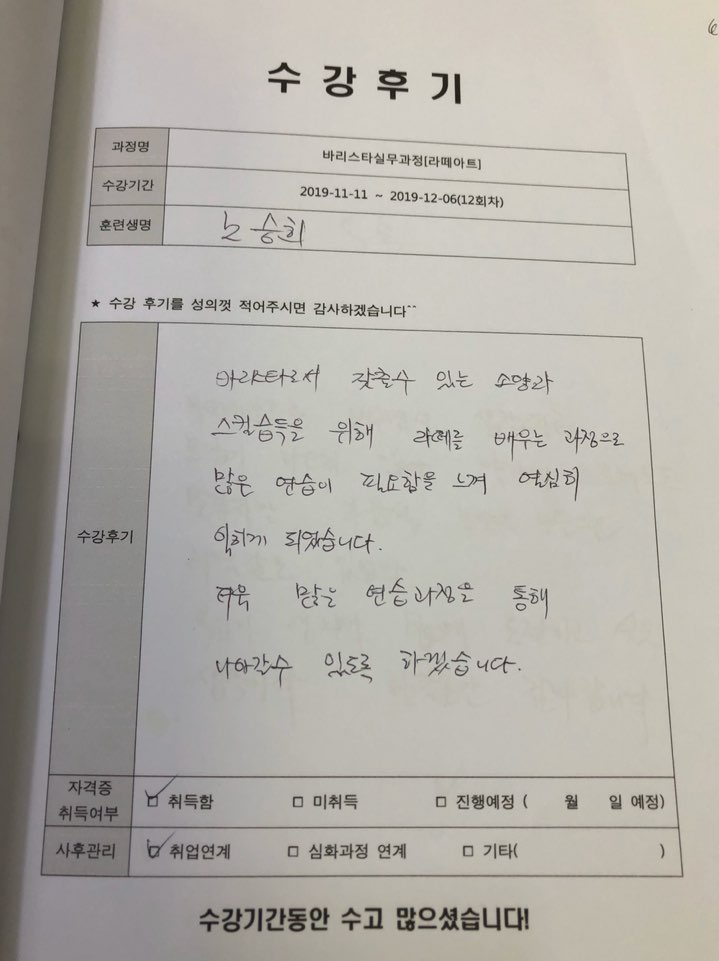 수강후기
과정명 바리스타실무과정[라떼아트]
수강기간 2019-11-11 ~ 2019-12-06(12회차)
훈련생명 노승희
★ 수강 후기를 성의껏 적어주시면 감사하겠습니다^^
수강후기
바리스타로서 갖출수 있는 소양과
스킬습득을 위해 라떼를 배우는 과정으로
많은 연습이 필요함을 느껴 열심히
익히게 되었습니다.
더욱 많은 연습과정을 통해
나아갈수 있도록 하겠습니다.
자격증
취득여부 ☑ 취득함 □ 미취득 □ 진행예정 ( 월 일 예정)
사후관리 ☑ 취업연계 □ 심화과정 연계 □ 기타( )
수강기간동안 수고 많으셨습니다!